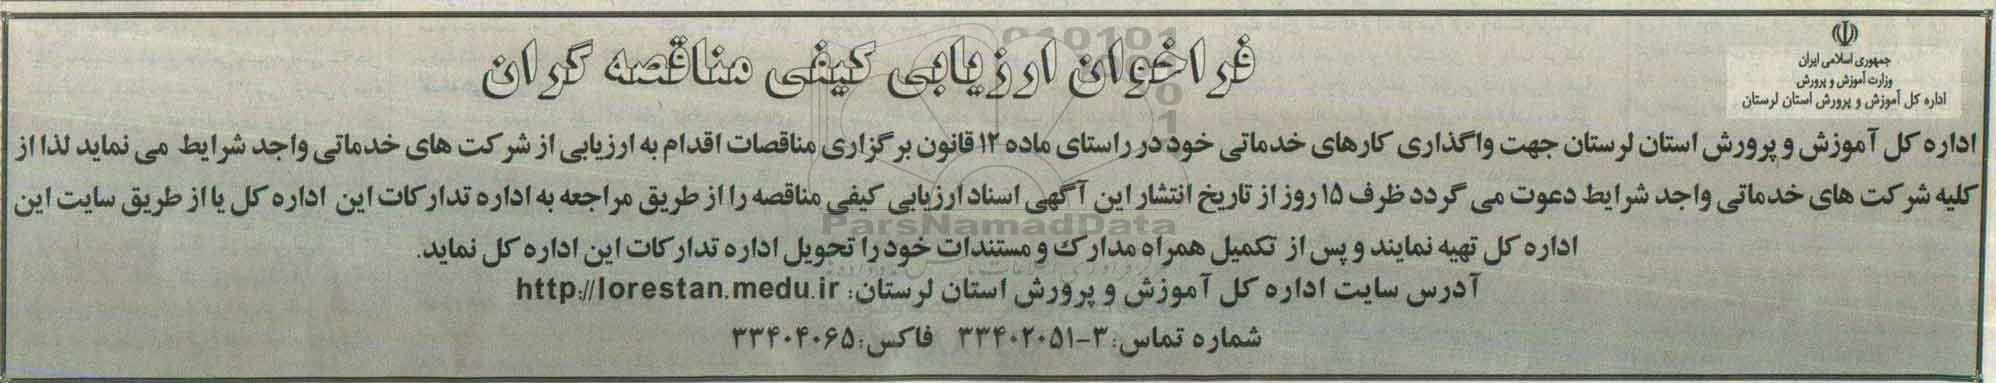 جمهوری اسلامی ایران
وزارت آموزش و پرورش
اداره کل آموزش و پرورش استان لرستان
فراخوان ارزیابی کیفی مناقصه گران
اداره کل آموزش و پرورش استان لرستان جهت واگذاری کارهای خدماتی خود در راستای ماده ۱۲ قانون برگزاری مناقصات اقدام به ارزیابی از شرکت های خدماتی واجد شرایط می نماید لذا از
کلیه شرکت های خدماتی واجد شرایط دعوت می گردد ظرف ۱۵ روز از تاریخ انتشار این آگهی اسناد ارزیابی کیفی مناقصه را از طریق مراجعه به اداره تدارکات این اداره کل یا از طریق سایت این
اداره کل تهیه نمایند و پس از تکمیل همراه مدارک و مستندات خود را تحویل اداره تدارکات این اداره کل نماید.
آدرس سایت اداره کل آموزش و پرورش استان لرستان: http://lorestan.medu.ir
شماره تماس: ۳-۳۳۴۰۲۰۵۱ فاکس: ۳۳۴۰۴۰۶۵
ParsNamadData